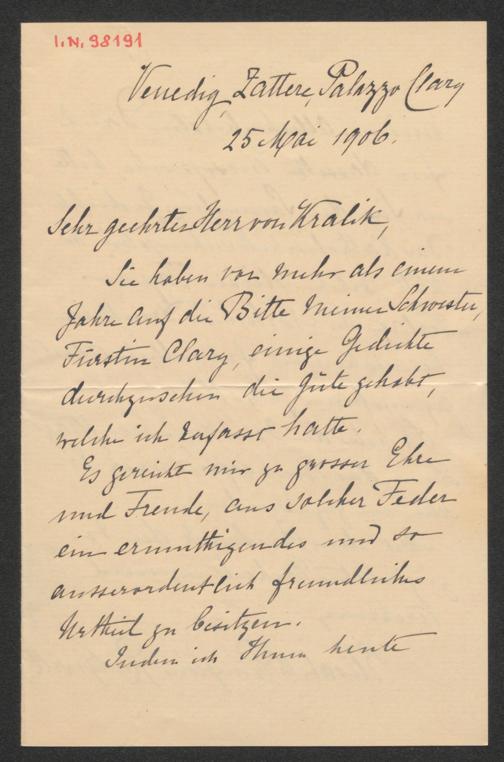 I.N. 98191
Venedig, Zattere, Palazzo Clary
25 Mai 1906.
Sehr geehrter Herr von Kralik,
Sie haben vor mehr als einem
Jahre auf die Bitte meiner Schwester,
Fürstin Clary, einige Gedichte
durchzusehen die Güte gehabt,
welche ich verfasst hatte.
Es gereicht mir zu grosser Ehre
und Freude, aus solcher Feder
ein ermuthigendes und so
ausserordentlich freundliches
Urtheil zu besitzen.
Indem ich Ihnen heute